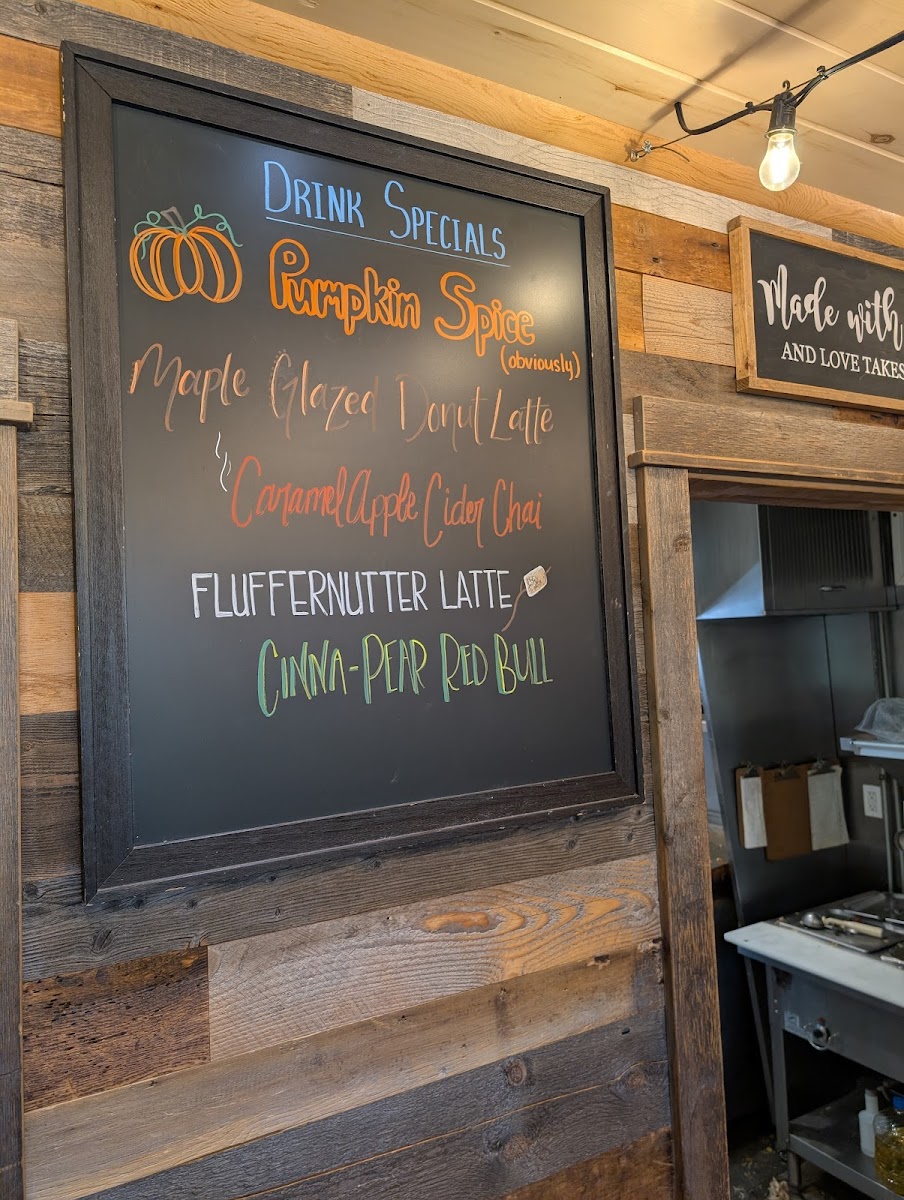 DRINK SPECIALS
Pumpkin Spice
(obviously)
Maple Glazed Donut Latte
Caramel Apple Cider Chai
FLUFFERNUTTER LATTE
CINNA-PEAR RED BULL
Made with
AND LOVE TAKES